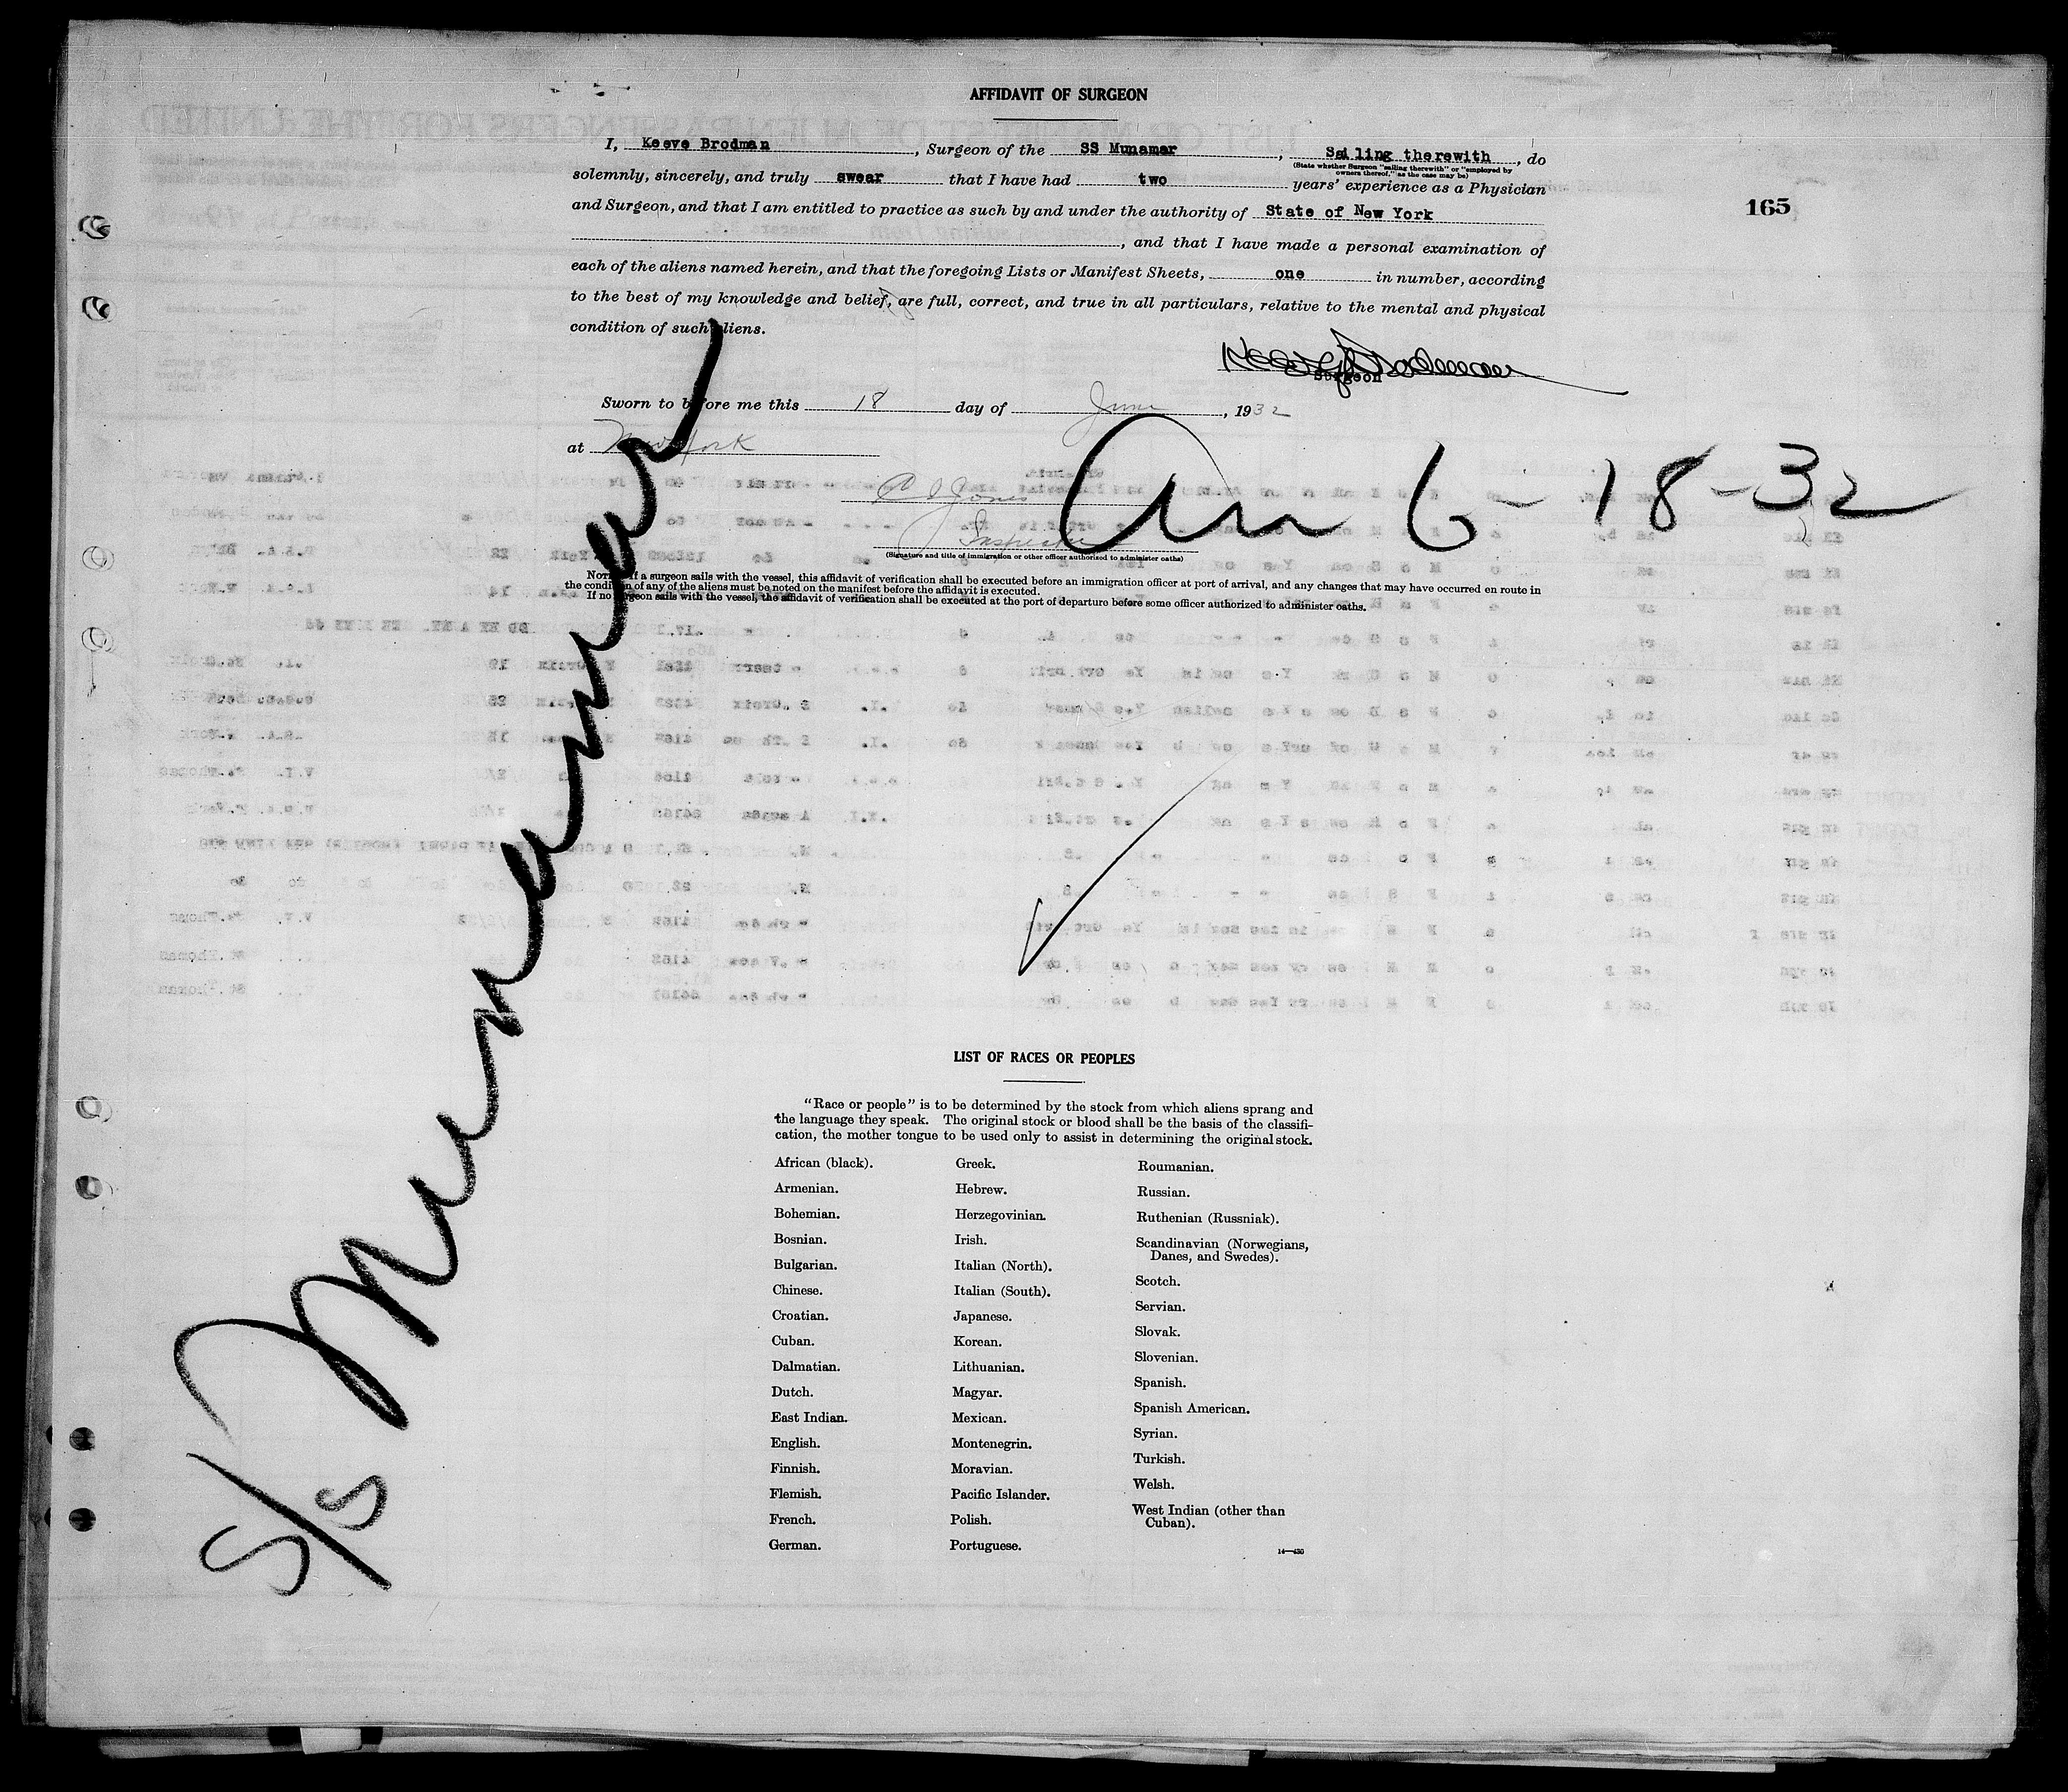 AFFIDAVIT OF SURGEON
I, Keeve Brodman, Surgeon of the SS Munamar, Sailing therewith, do
(State whether Surgeon "sailing therewith" or "employed by owners thereof," as the case may be)
solemnly, sincerely, and truly swear that I have had two years' experience as a Physician
and Surgeon, and that I am entitled to practice as such by and under the authority of State of New York
, and that I have made a personal examination of
165
each of the aliens named herein, and that the foregoing Lists or Manifest Sheets, one in number, according
to the best of my knowledge and belief, are full, correct, and true in all particulars, relative to the mental and physical
condition of such aliens.
Keeve Brodman
Surgeon
Sworn to before me this 18 day of June, 1932
at New York
C J Jones
Inspector
(Signature and title of immigration or other officer authorized to administer oaths)
Arr 6-18-32
S/S Munamar
NOTE.—If a surgeon sails with the vessel, this affidavit of verification shall be executed before an immigration officer at port of arrival, and any changes that may have occurred en route in
the condition of any of the aliens must be noted on the manifest before the affidavit is executed.
If no surgeon sails with the vessel, the affidavit of verification shall be executed at the port of departure before some officer authorized to administer oaths.
LIST OF RACES OR PEOPLES
"Race or people" is to be determined by the stock from which aliens sprang and
the language they speak. The original stock or blood shall be the basis of the classifi-
cation, the mother tongue to be used only to assist in determining the original stock.
African (black).
Armenian.
Bohemian.
Bosnian.
Bulgarian.
Chinese.
Croatian.
Cuban.
Dalmatian.
Dutch.
East Indian.
English.
Finnish.
Flemish.
French.
German.
Greek.
Hebrew.
Herzegovinian.
Irish.
Italian (North).
Italian (South).
Japanese.
Korean.
Lithuanian.
Magyar.
Mexican.
Montenegrin.
Moravian.
Pacific Islander.
Polish.
Portuguese.
Roumanian.
Russian.
Ruthenian (Russniak).
Scandinavian (Norwegians,
Danes, and Swedes).
Scotch.
Servian.
Slovak.
Slovenian.
Spanish.
Spanish American.
Syrian.
Turkish.
Welsh.
West Indian (other than
Cuban).
14—430